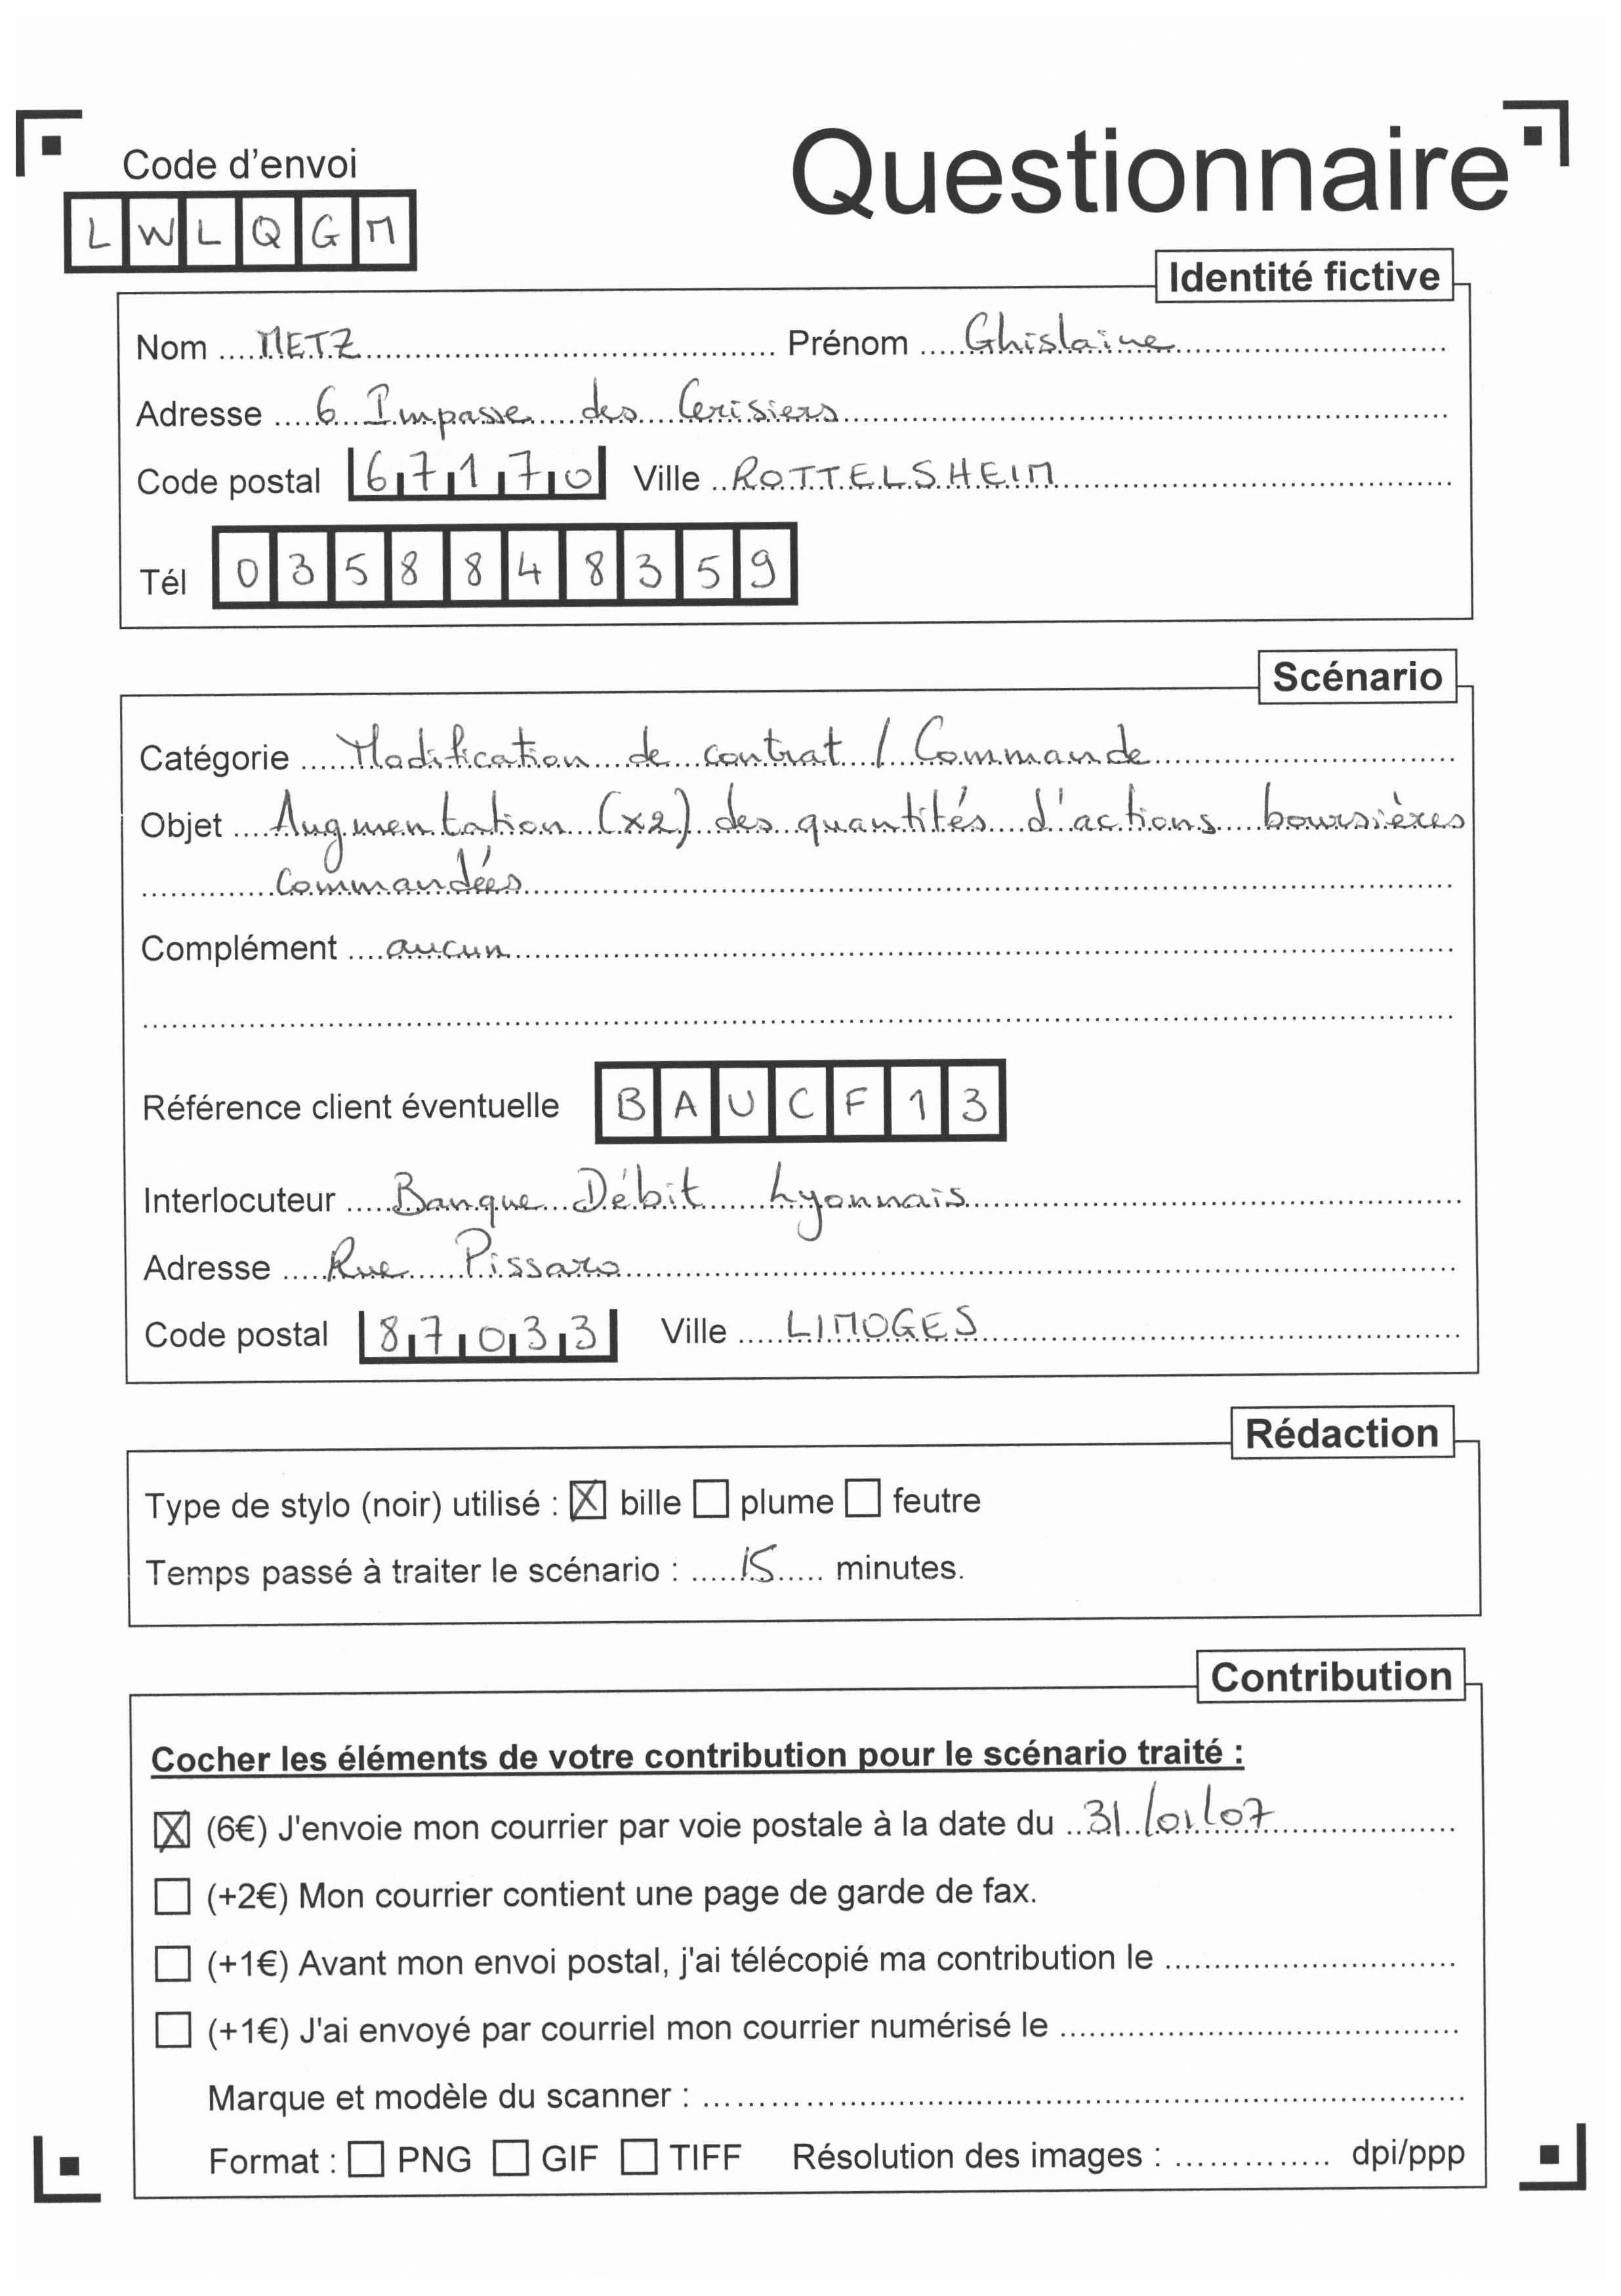 Questionnaire
Code d'envoi
LWLQGM
Identité fictive
Nom METZ Prénom Ghislaine
Adresse 6 Impasse des Cerisiers
Code postal 67170 Ville ROTTELSHEIM
Tél 0358848359
Scénario
Catégorie Modification de contrat / Commande
Objet Augmentation (x2) des quantités d'actions boursières
Commandées
Complément aucun
Référence client éventuelle BAUCF13
Interlocuteur Banque Débit Lyonnais
Adresse Rue Pissaro
Code postal 87033 Ville LIMOGES
Rédaction
Type de stylo (noir) utilisé : ☒ bille ☐ plume ☐ feutre
Temps passé à traiter le scénario : 15 minutes.
Contribution
Cocher les éléments de votre contribution pour le scénario traité :
☒ (6€) J'envoie mon courrier par voie postale à la date du 31/01/07
☐ (+2€) Mon courrier contient une page de garde de fax.
☐ (+1€) Avant mon envoi postal, j'ai télécopié ma contribution le
☐ (+1€) J'ai envoyé par courriel mon courrier numérisé le
Marque et modèle du scanner :
Format : ☐ PNG ☐ GIF ☐ TIFF Résolution des images : dpi/ppp